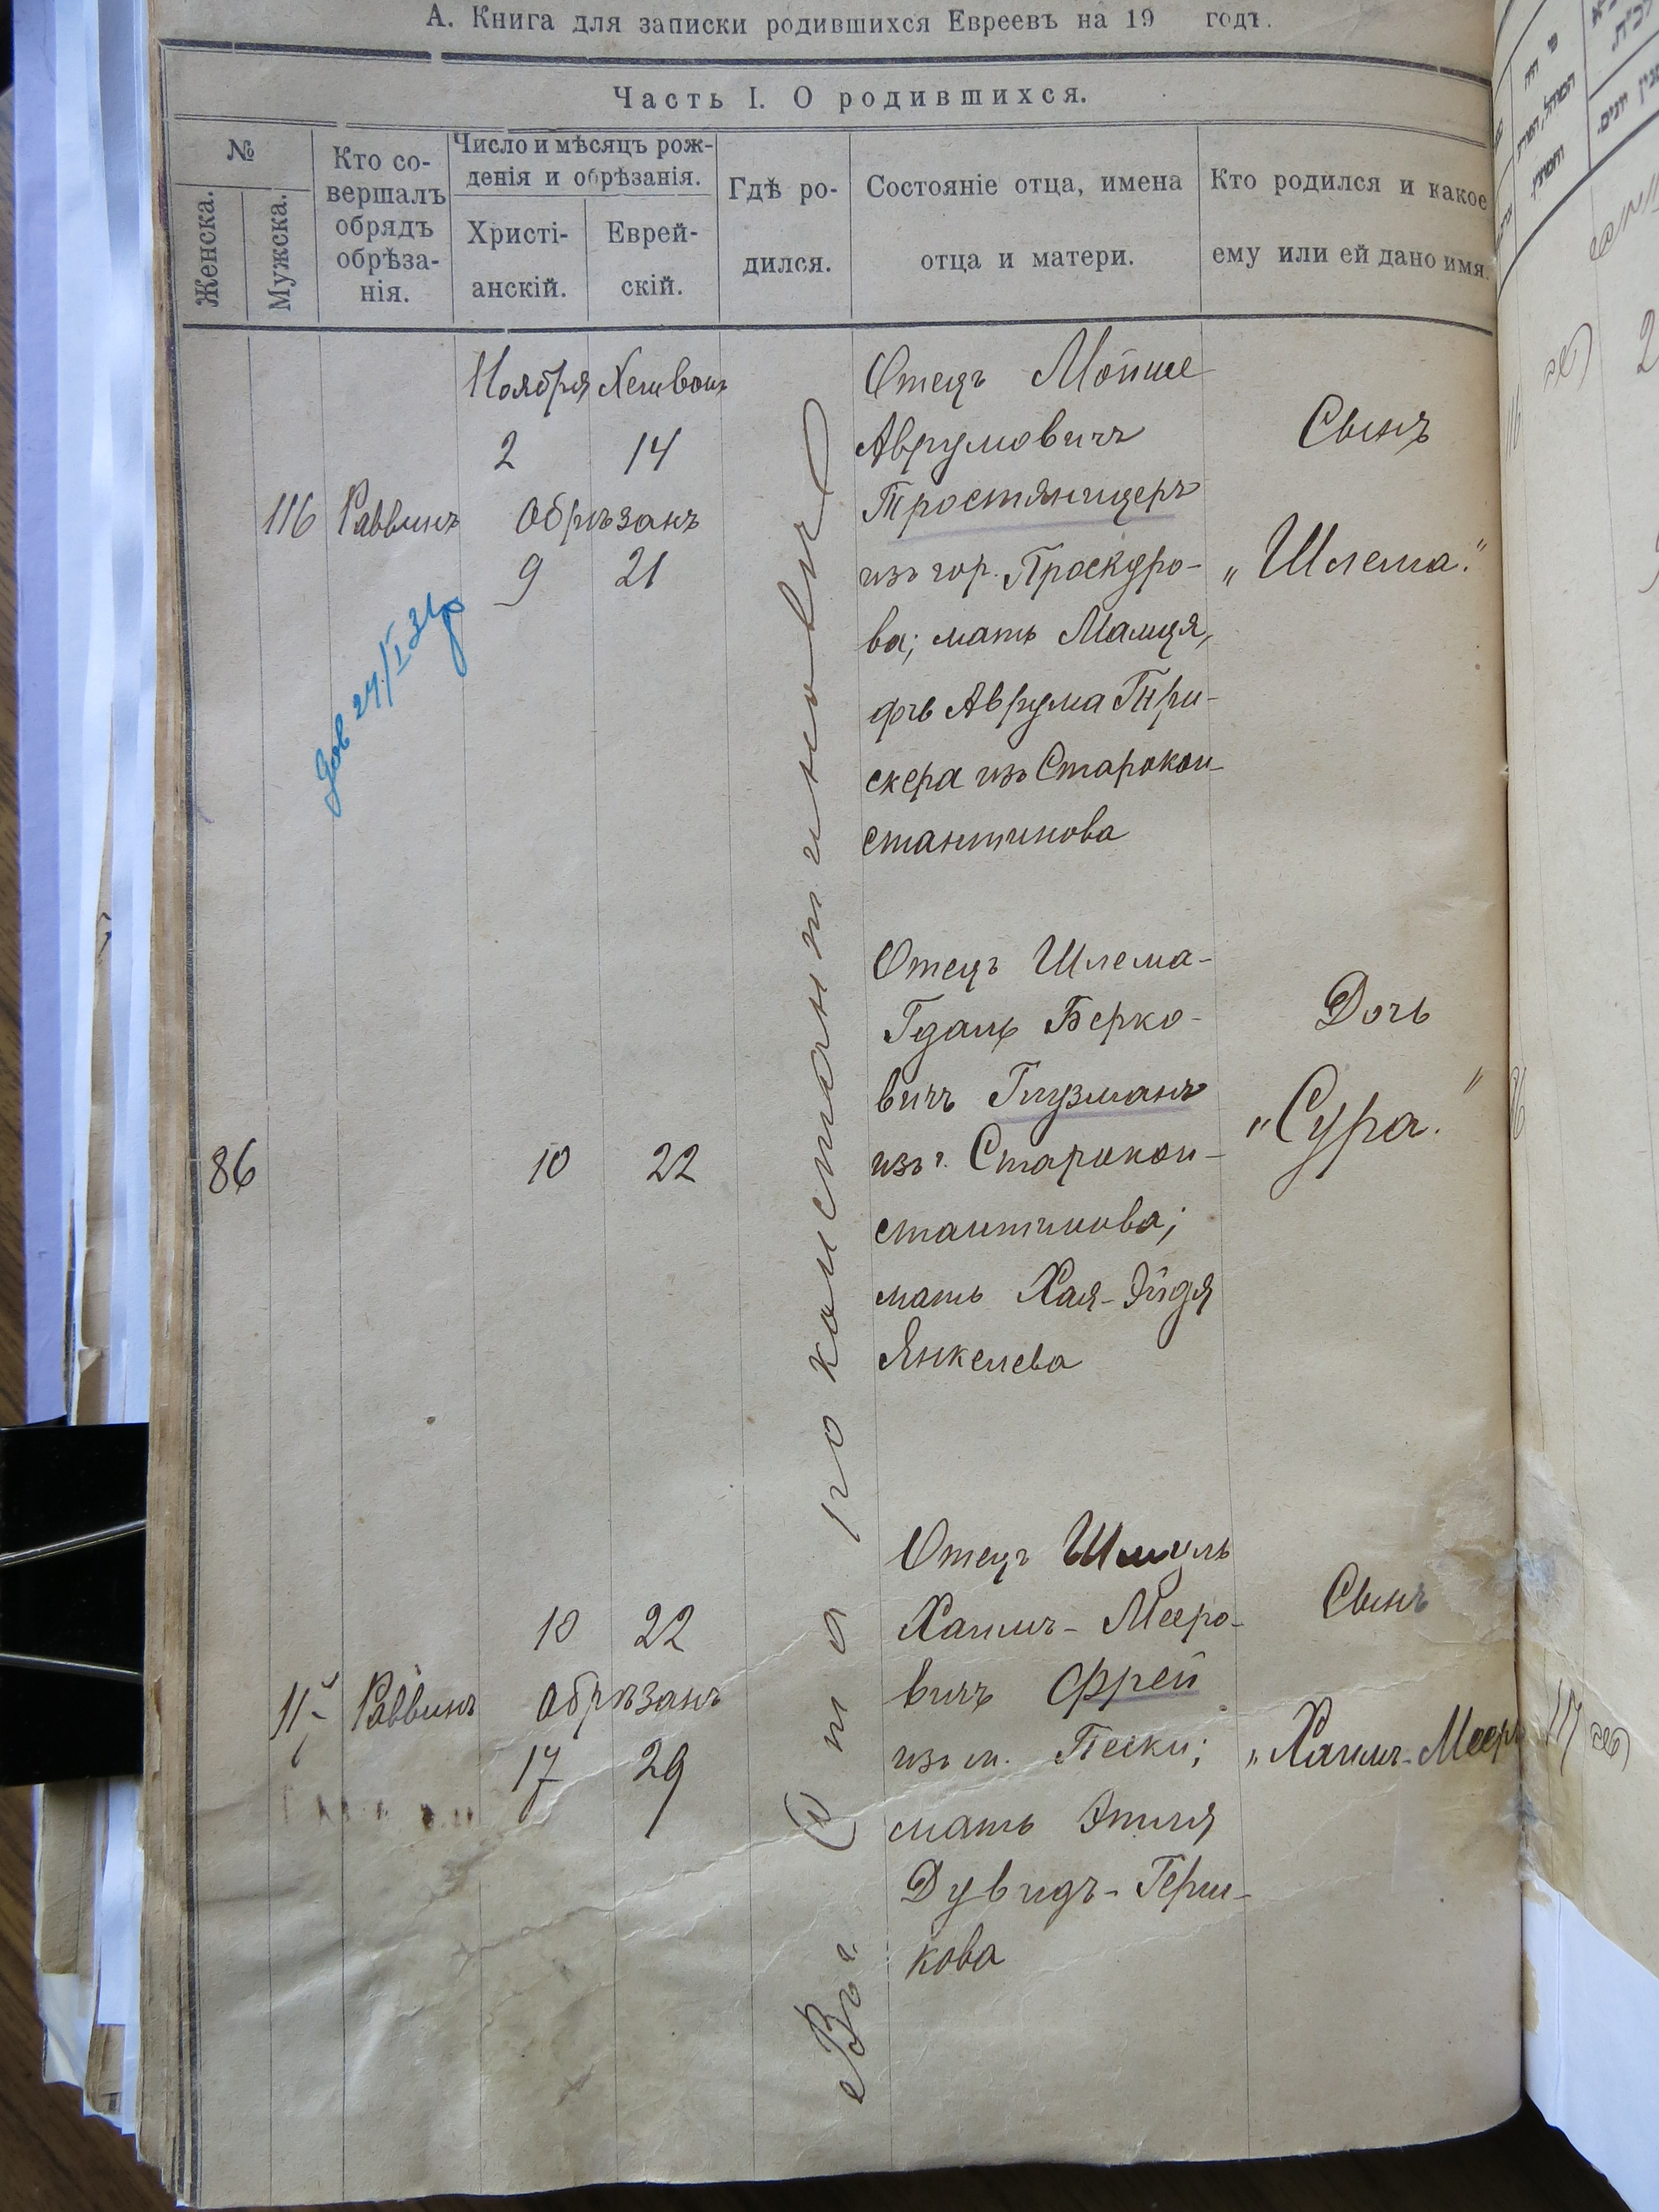 А. Книга для записки родившихся Евреевъ на 19 годъ.
Часть I. О родившихся.
№
Женска.
Мужска.
Кто со-
вершалъ
обрядъ
обрѣза-
нія.
Число и мѣсяцъ рож-
денія и обрѣзанія.
Христі-
анскій.
Еврей-
скій.
Гдѣ ро-
дился.
Состояніе отца, имена
отца и матери.
Кто родился и какое
ему или ей дано имя.
Въ г. Староконстантиновѣ
116
Раввинъ
Ноября Хешвонъ
2 14
Обрѣзанъ
9 21
Отецъ Мойше
Аврумовичъ
Тростяницеръ
изъ гор. Проскуро-
ва; мать Маица,
дчь Аврума
скера изъ Старокон-
стантинова
Сынъ
„Шлема."
86
10 22
Отецъ Шлема-
Гдаль Берко-
вичъ Глузманъ
изъ г. Старокон-
стантинова;
мать Хая-Эйдя
Янкелева
Дочь
„Сура."
Раввинъ
10 22
Обрѣзанъ
17 29
Отецъ Шмуль
Хаимъ-Мееро-
вичъ Фрей
изъ м. Пески;
мать Этля
Дувидъ-Герш-
кова
Сынъ
„Хаимъ-Мееръ